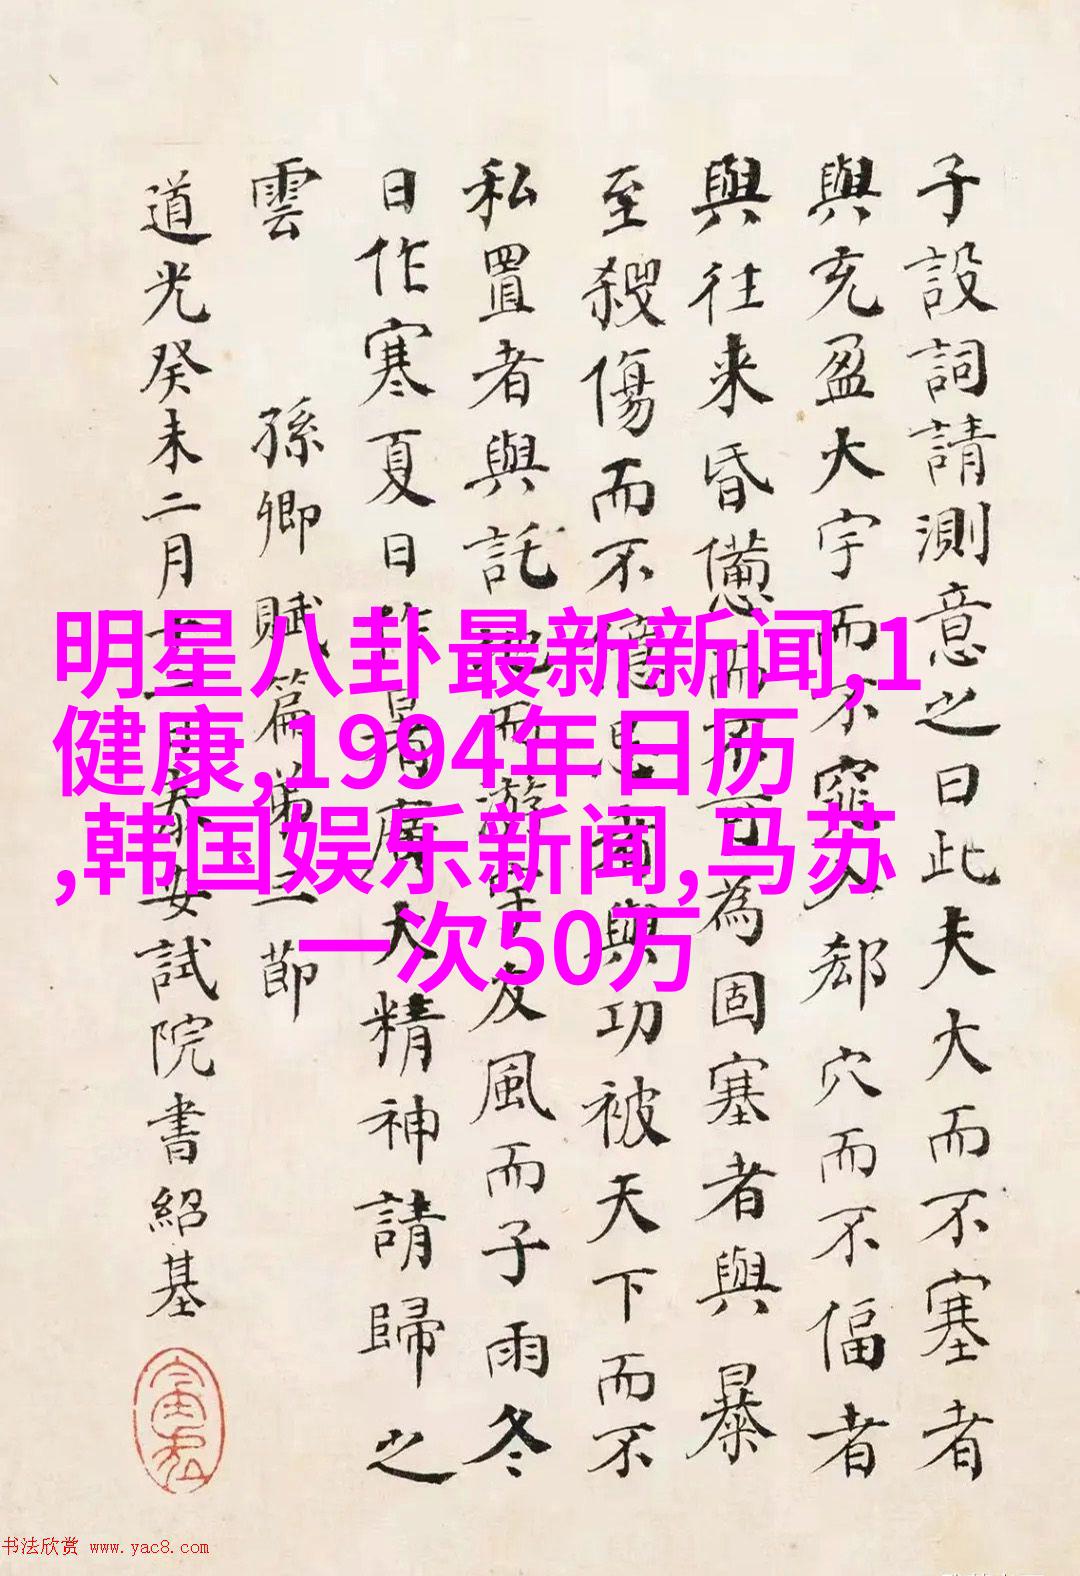 子設詞請測意之曰此夫大而不塞者
與充盈大宇而不窕入郄穴而不偪者
與往来昏憊而不可為固塞者與暴
至殺傷而不億忌者與功被天下而不
私置者與託地而游宇友風而子雨冬
日作寒夏日作暑者廣大精神請歸之
雲 孫卿賦篇第節
道光癸未二月日泰安試院書紹基
明星八卦最新新闻,1
健康,1994年日历
,韩国娱乐新闻,马苏
一次50万
书法欣赏 www.yac8.com